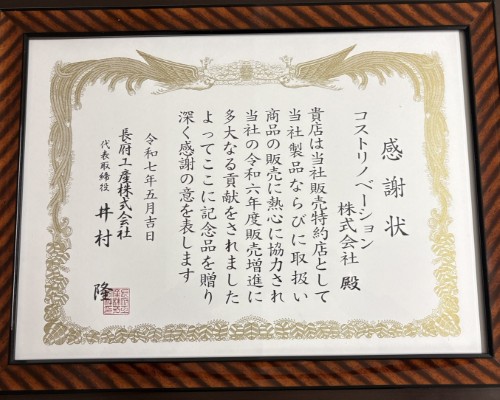 感謝状
コストリノベーション
株式会社 殿
貴店は当社販売特約店として
当社製品ならびに取扱い
商品の販売に熱心に協力され
当社の令和六年度販売増進に
多大なる貢献をされました
よってここに記念品を贈り
深く感謝の意を表します
令和七年五月吉日
長府工産株式会社
代表取締役 井村 隆